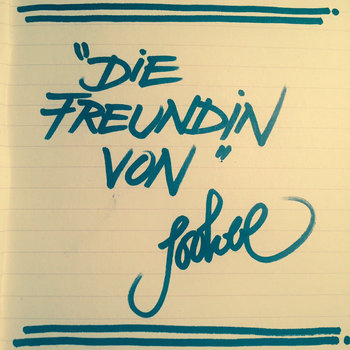 "DiE
FREUNDiN
VON"
Sookee